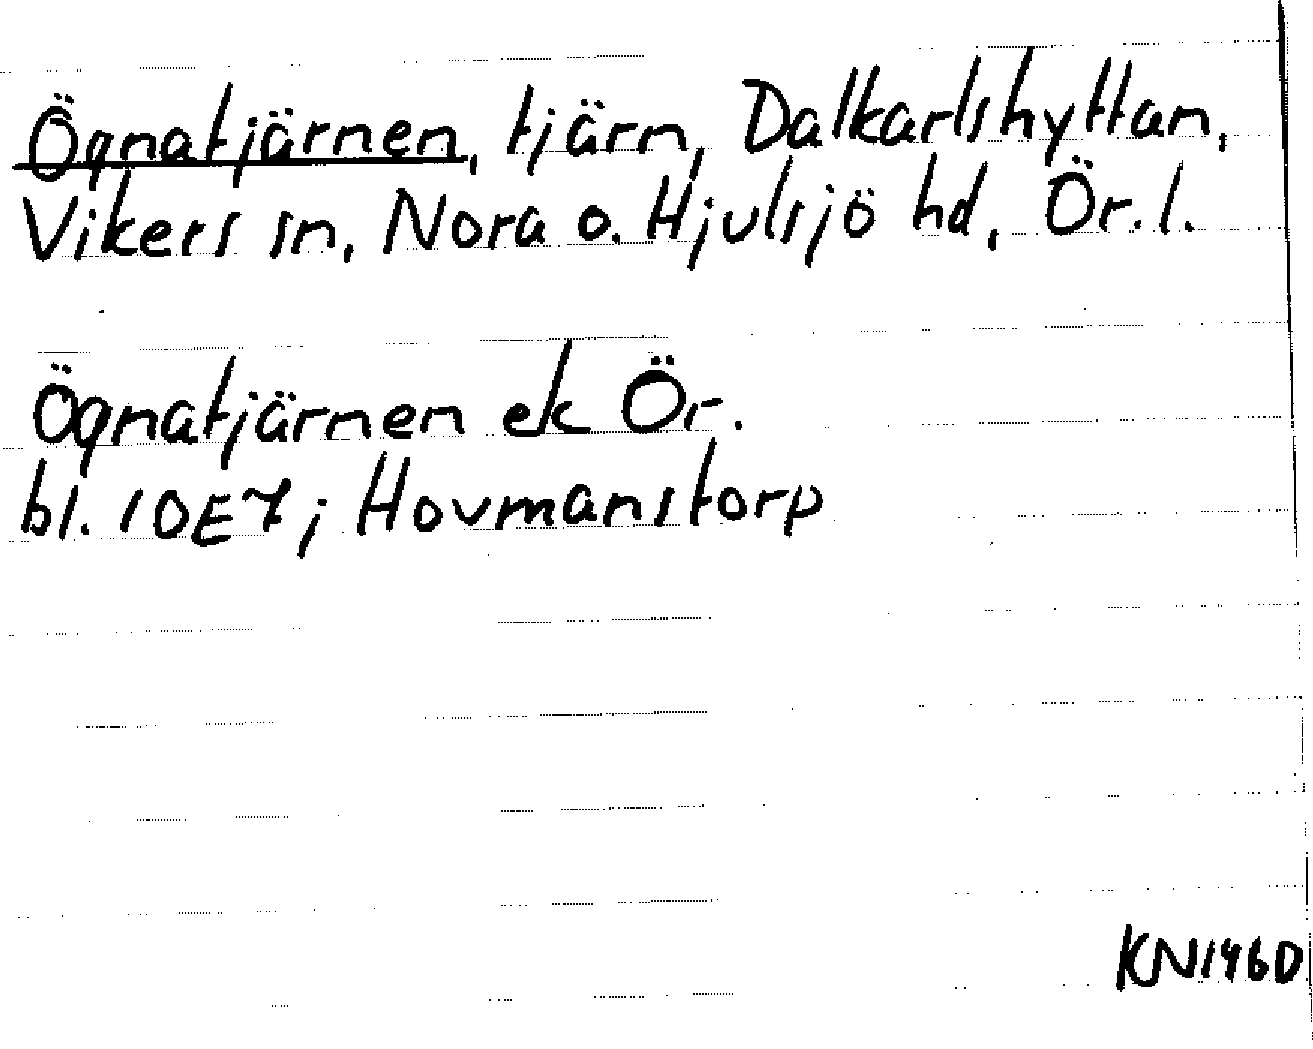 Ögnatjärnen, tjärn, Dalkarlshyttan,
Vikers sn, Nora o. Hjulsjö hd, Ör. l.
Ögnatjärnen ek Ör.
bl. 10E7; Hovmanstorp
KN146D